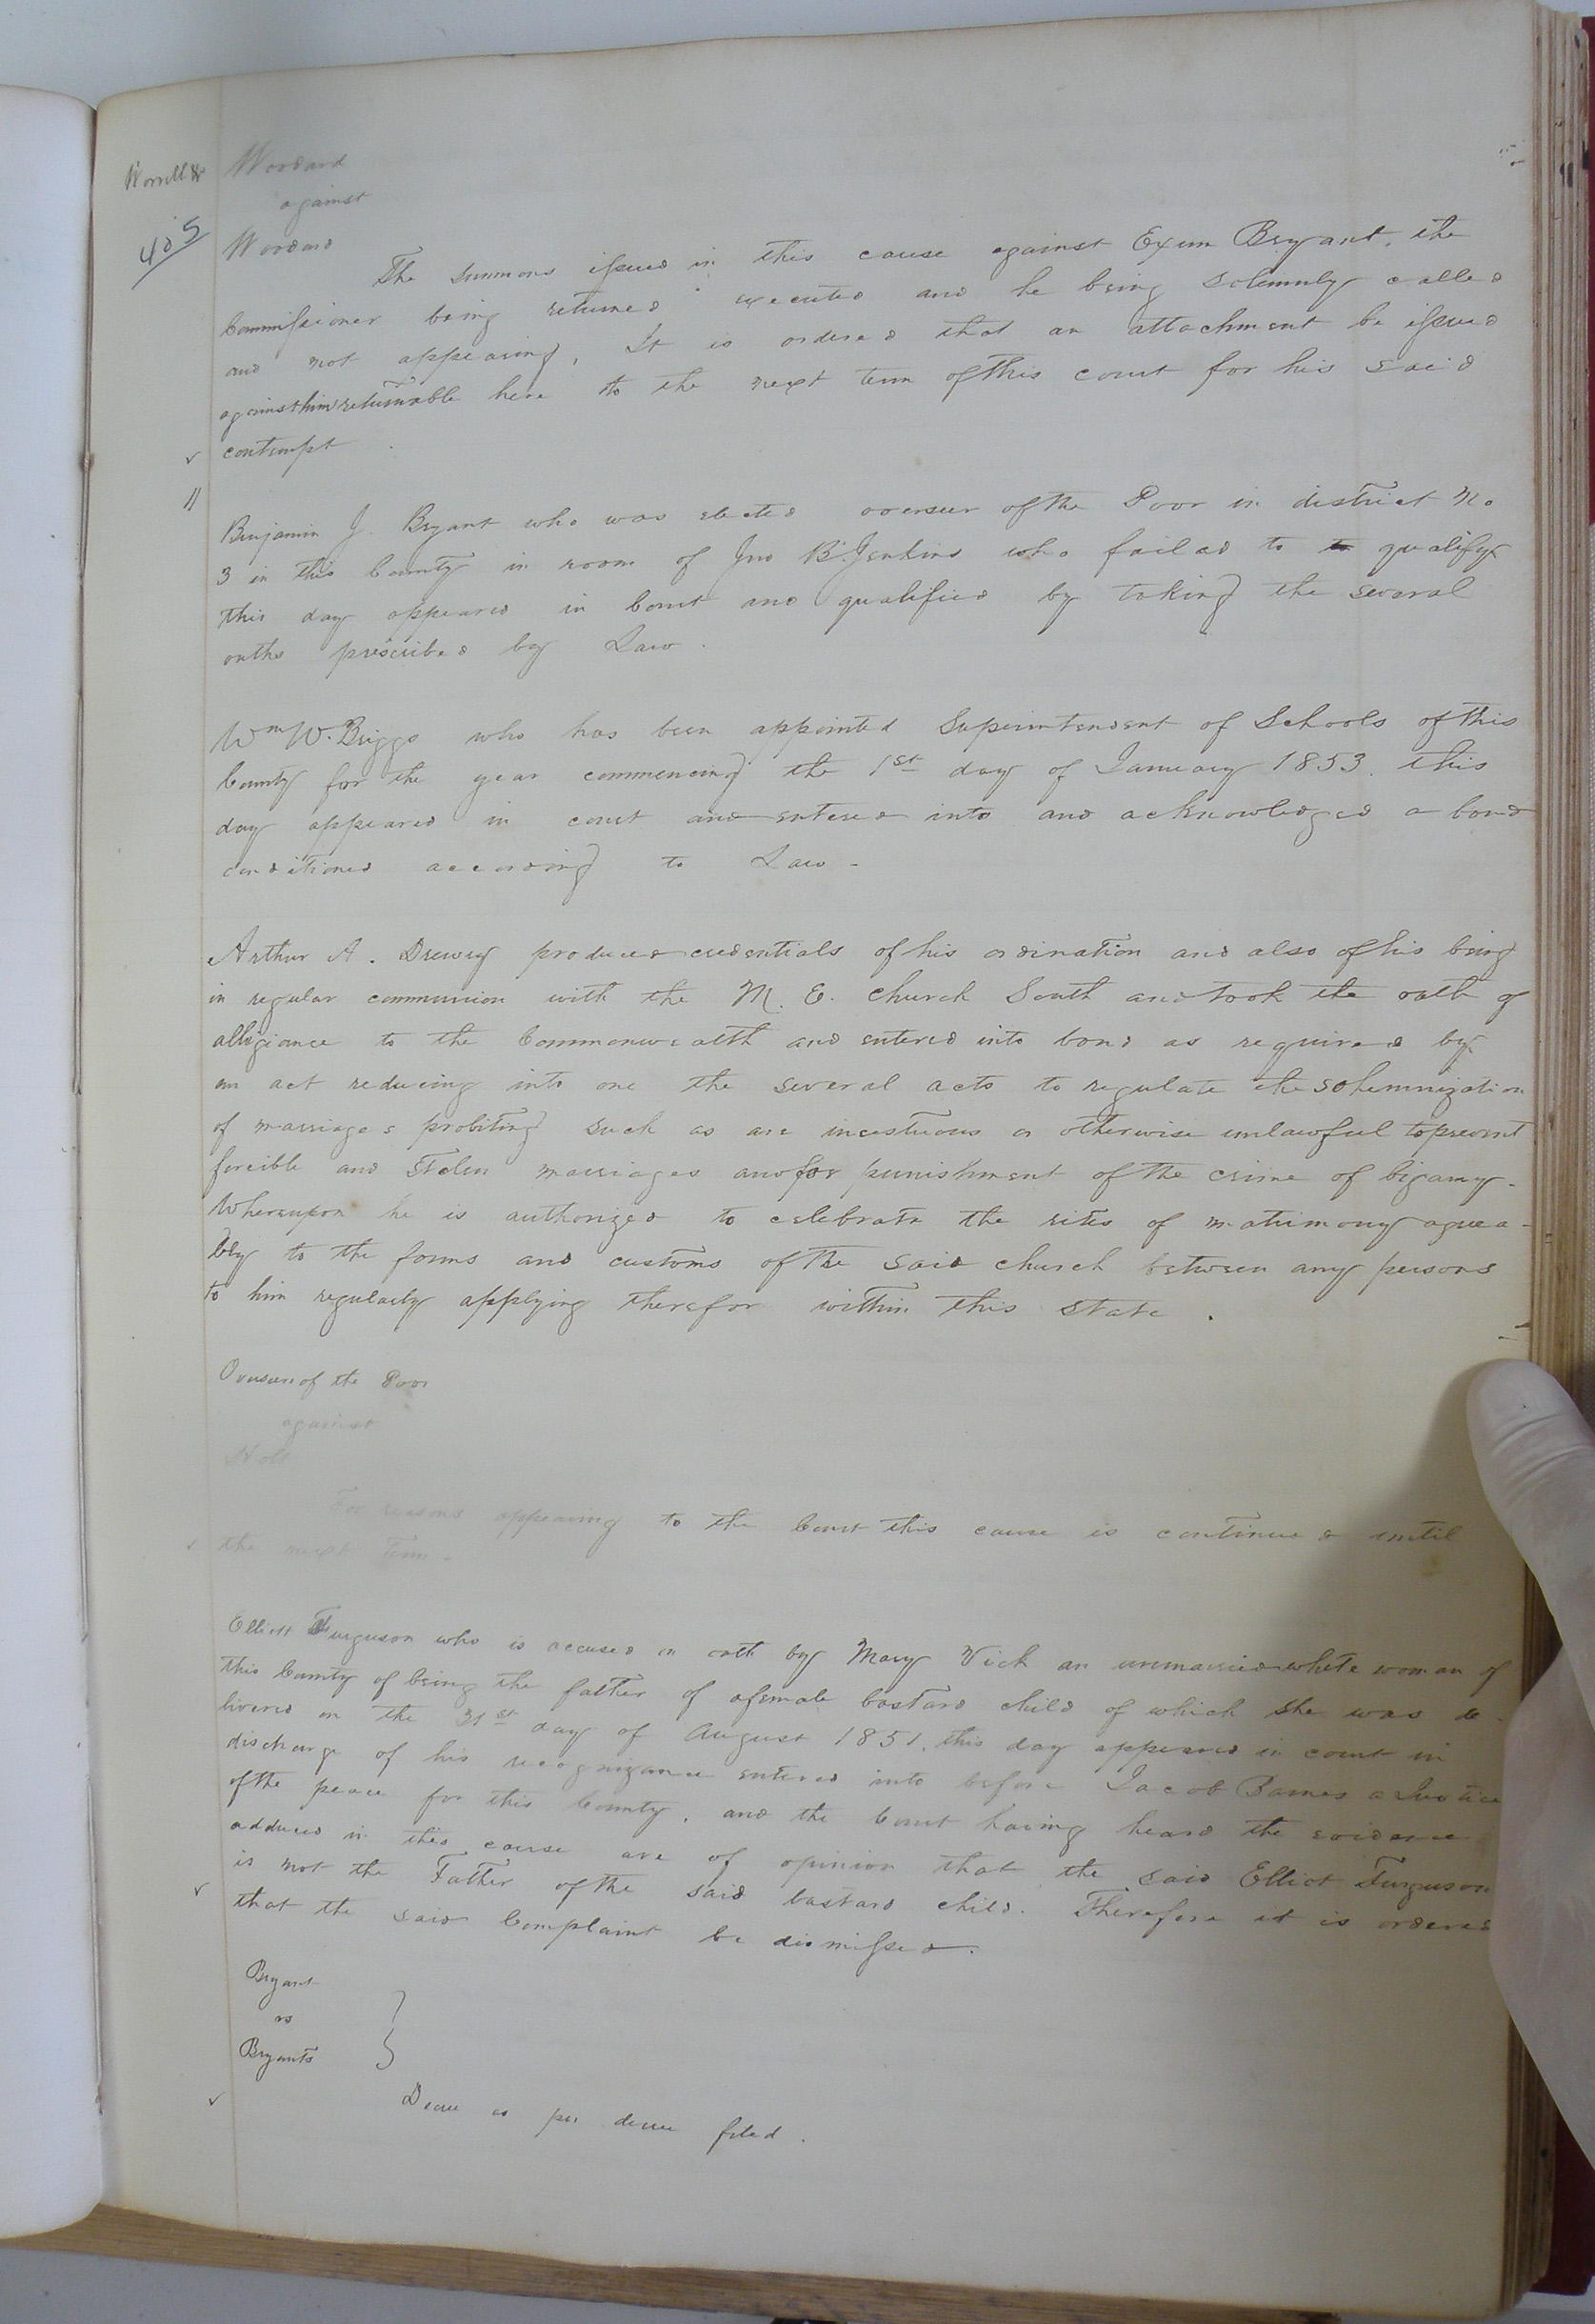 Worrell &c
405
Woodard
against
Woodard
The summons issued in this cause against Exum Bryant, the
Commissioner being returned executed and he being solemnly called
and not appearing, It is ordered that an attachment be issued
against him returnable here to the next term of this court for his said
contempt
Benjamin J. Bryant who was elected overseer of the Poor in district No
3 in this County in room of Jno B. Jenkins who failed to to qualify
this day appeared in Court and qualified by taking the several
oaths prescribed by Law.
Wm W. Briggs who has been appointed Superintendent of Schools of this
County for the year commencing the 1st day of January 1853. this
day appeared in court and entered into and acknowledged a bond
conditioned according to Law -
Arthur A. Drewry produced credentials of his ordination and also of his being
in regular communion with the M. E. Church South and took the oath of
allegiance to the Commonwealth and entered into bond as required by
an act reducing into one the several acts to regulate the solemnization
of marriages probiting such as are incestuous or otherwise unlawful to prevent
forcible and stolen marriages and for punishment of the crime of bigamy -
Whereupon he is authorized to celebrate the rites of matrimony agreea-
bly to the forms and customs of the said church between any persons
to him regularly applying therefor within this State.
Overseers of the Poor
against
Holt
For reasons appearing to the Court this cause is continued until
the next Term -
Elliott Furguson who is accused on oath by Mary Vick an unmarried white woman of
this County of being the father of a female bastard child of which she was de-
livered on the 31st day of August 1851. this day appeared in court in
discharge of his recognizance entered into before Jacob Barnes a Justice
of the peace for this County, and the Court having heard the evidence
adduced in this cause are of opinion that the said Elliot Furguson
is not the Father of the said bastard child. Therefore it is ordered
that the said Complaint be dismissed.
Bryant
vs
Bryants
Decree as per decree filed.